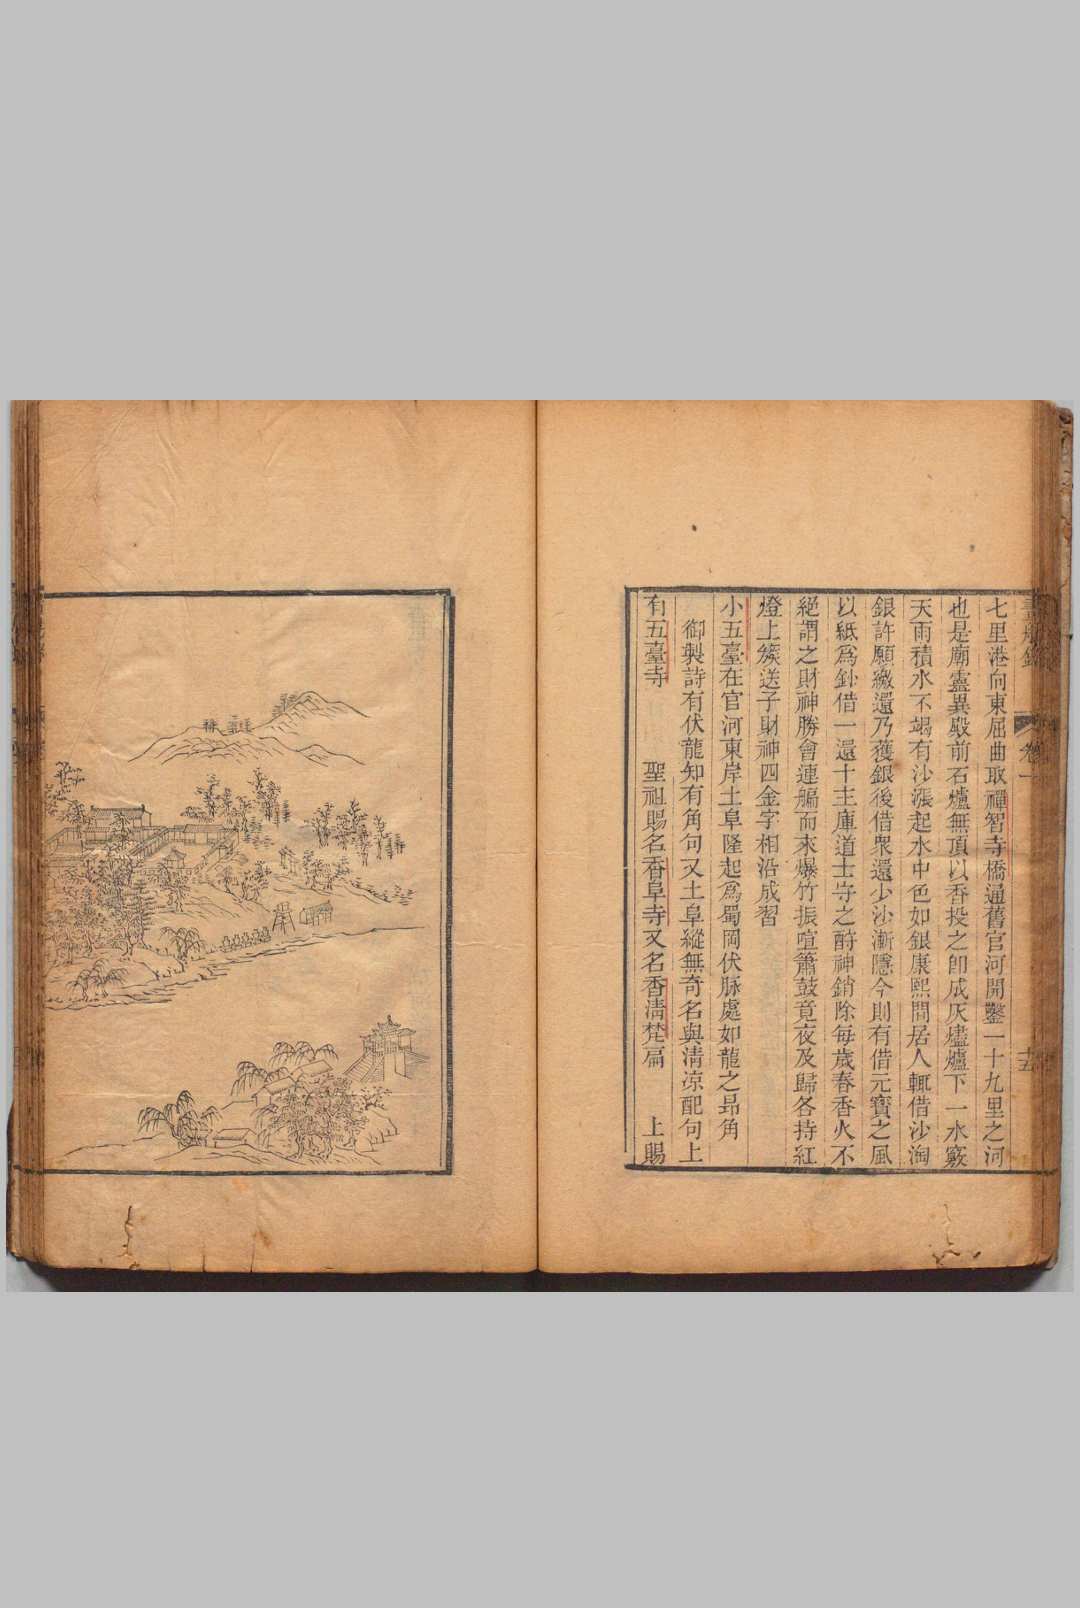 七里港向東屈曲取禪智寺橋通舊官河開鑿一十九里之河
也是廟靈異殿前石爐無頂以香投之卽成灰燼爐下一水竅
天雨積水不竭有沙漲起水中色如銀康熙間居人輒借沙淘
銀許願繳還乃獲銀後借衆還少沙漸隱今則有借元寶之風
以紙爲鈔借一還十主庫道士守之酹神銷除每歲春香火不
絕謂之財神勝會連艑而來爆竹振喧簫鼓竟夜及歸各持紅
燈上簇送子財神四金字相沿成習
小五臺在官河東岸土阜隆起爲蜀岡伏脉處如龍之昻角
御製詩有伏龍知有角句又土阜縱無奇名與清凉配句上
有五臺寺 聖祖賜名香阜寺又名香清梵扁 上賜
卷一